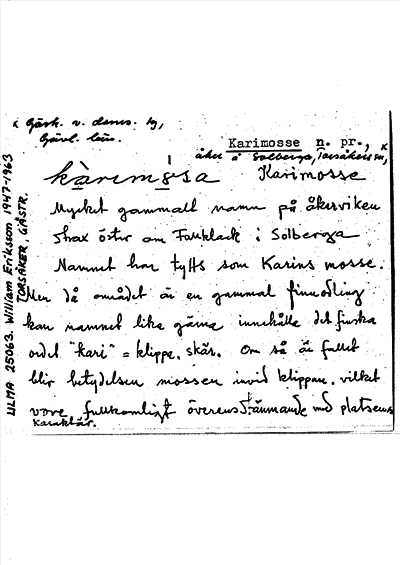 x Gästr. v. doms. by,
Gävl. län.
Karimosse n. pr., x
åker å Solberga, Torsåkers sn,
kàrimɔ̀sa Karimosse
Mycket gammalt namn på åkersviken
strax öster om Fallklack i Solberga
Namnet har tytts som Karins mosse.
Men då området är en gammal finnodling
kan namnet lika gärna innehålla det finska
ordet "kari" = klippa, skär. Om så är fallet
blir betydelsen mossen invid klippan, vilket
vore fullkomligt överensstämmande med platsens
karaktär.
ULMA 25063. William Eriksson 1947-1963
TORSÅKER, GÄSTR.